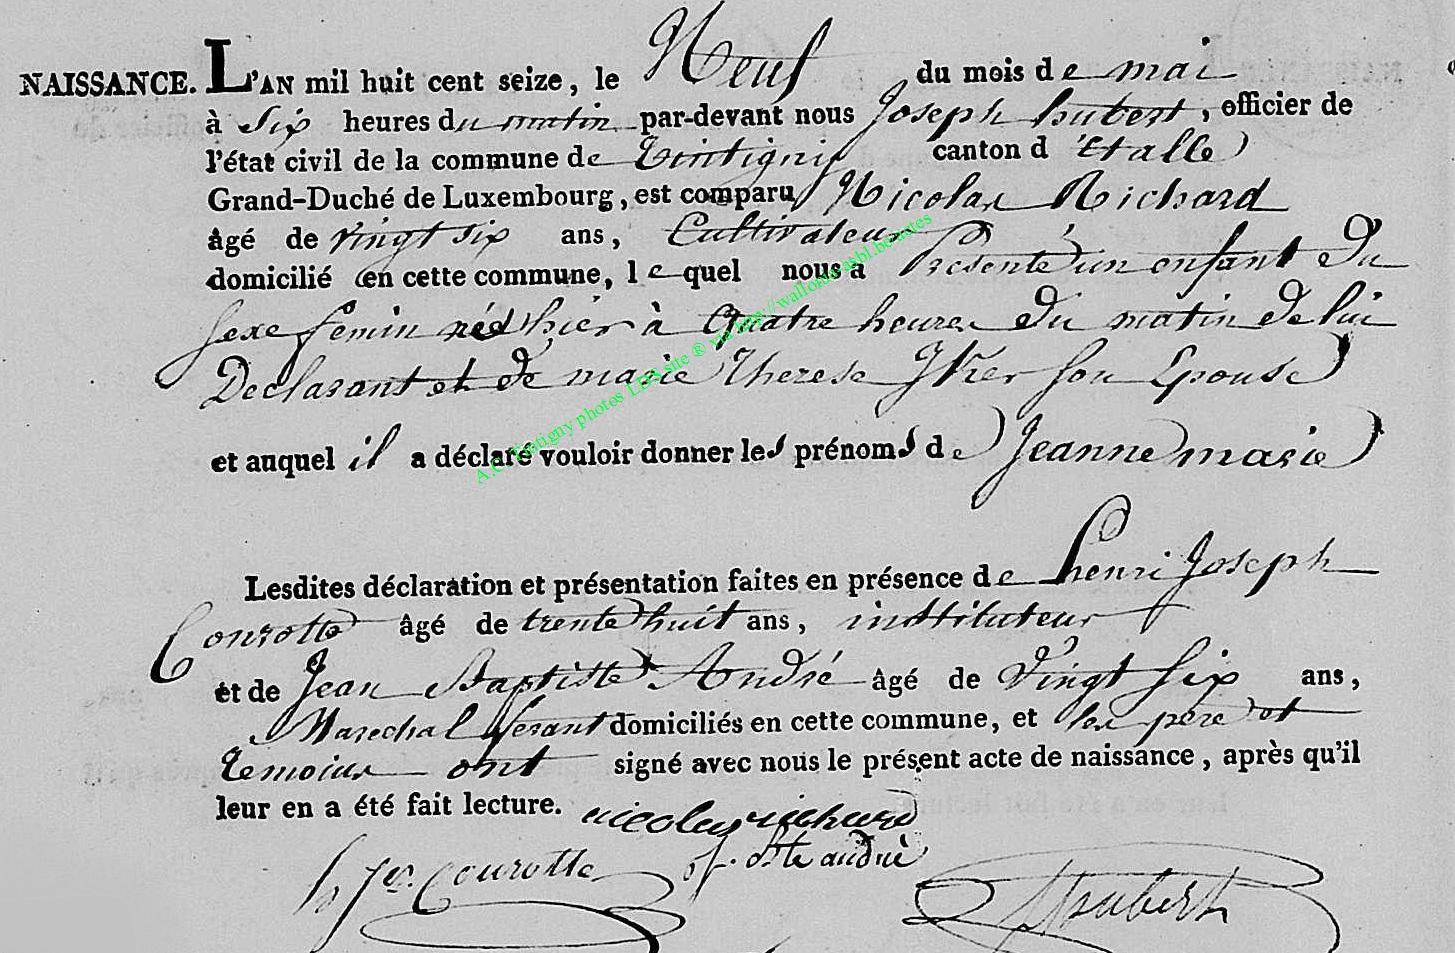 NAISSANCE. L'AN mil huit cent seize, le Neuf du mois de mai
à Six heures du matin par-devant nous Joseph hubert, officier de
l'état civil de la commune de Tintigny canton d'Etalle
Grand-Duché de Luxembourg, est comparu Nicolas Richard
âgé de vingt six ans, Cultivateur
domicilié en cette commune, lequel nous a Présenté un enfant Du
sexe feminin né hier à quatre heures Du matin De lui
Declarant et De marie Therese son Epouse
et auquel il a déclaré vouloir donner les prénoms de Jeanne marie
Lesdites déclaration et présentation faites en présence de henri Joseph
Courotte âgé de trente huit ans, instituteur
et de Jean Baptiste André âgé de Vingt six ans,
Marechal ferant domiciliés en cette commune, et les pere et
temoins ont signé avec nous le présent acte de naissance, après qu'il
leur en a été fait lecture. nicolas richard
h Jos. Courotte J. bte andré
Hubert
A.C. Tintigny photos LDS site ® via http://wallonia-asbl.be/actes